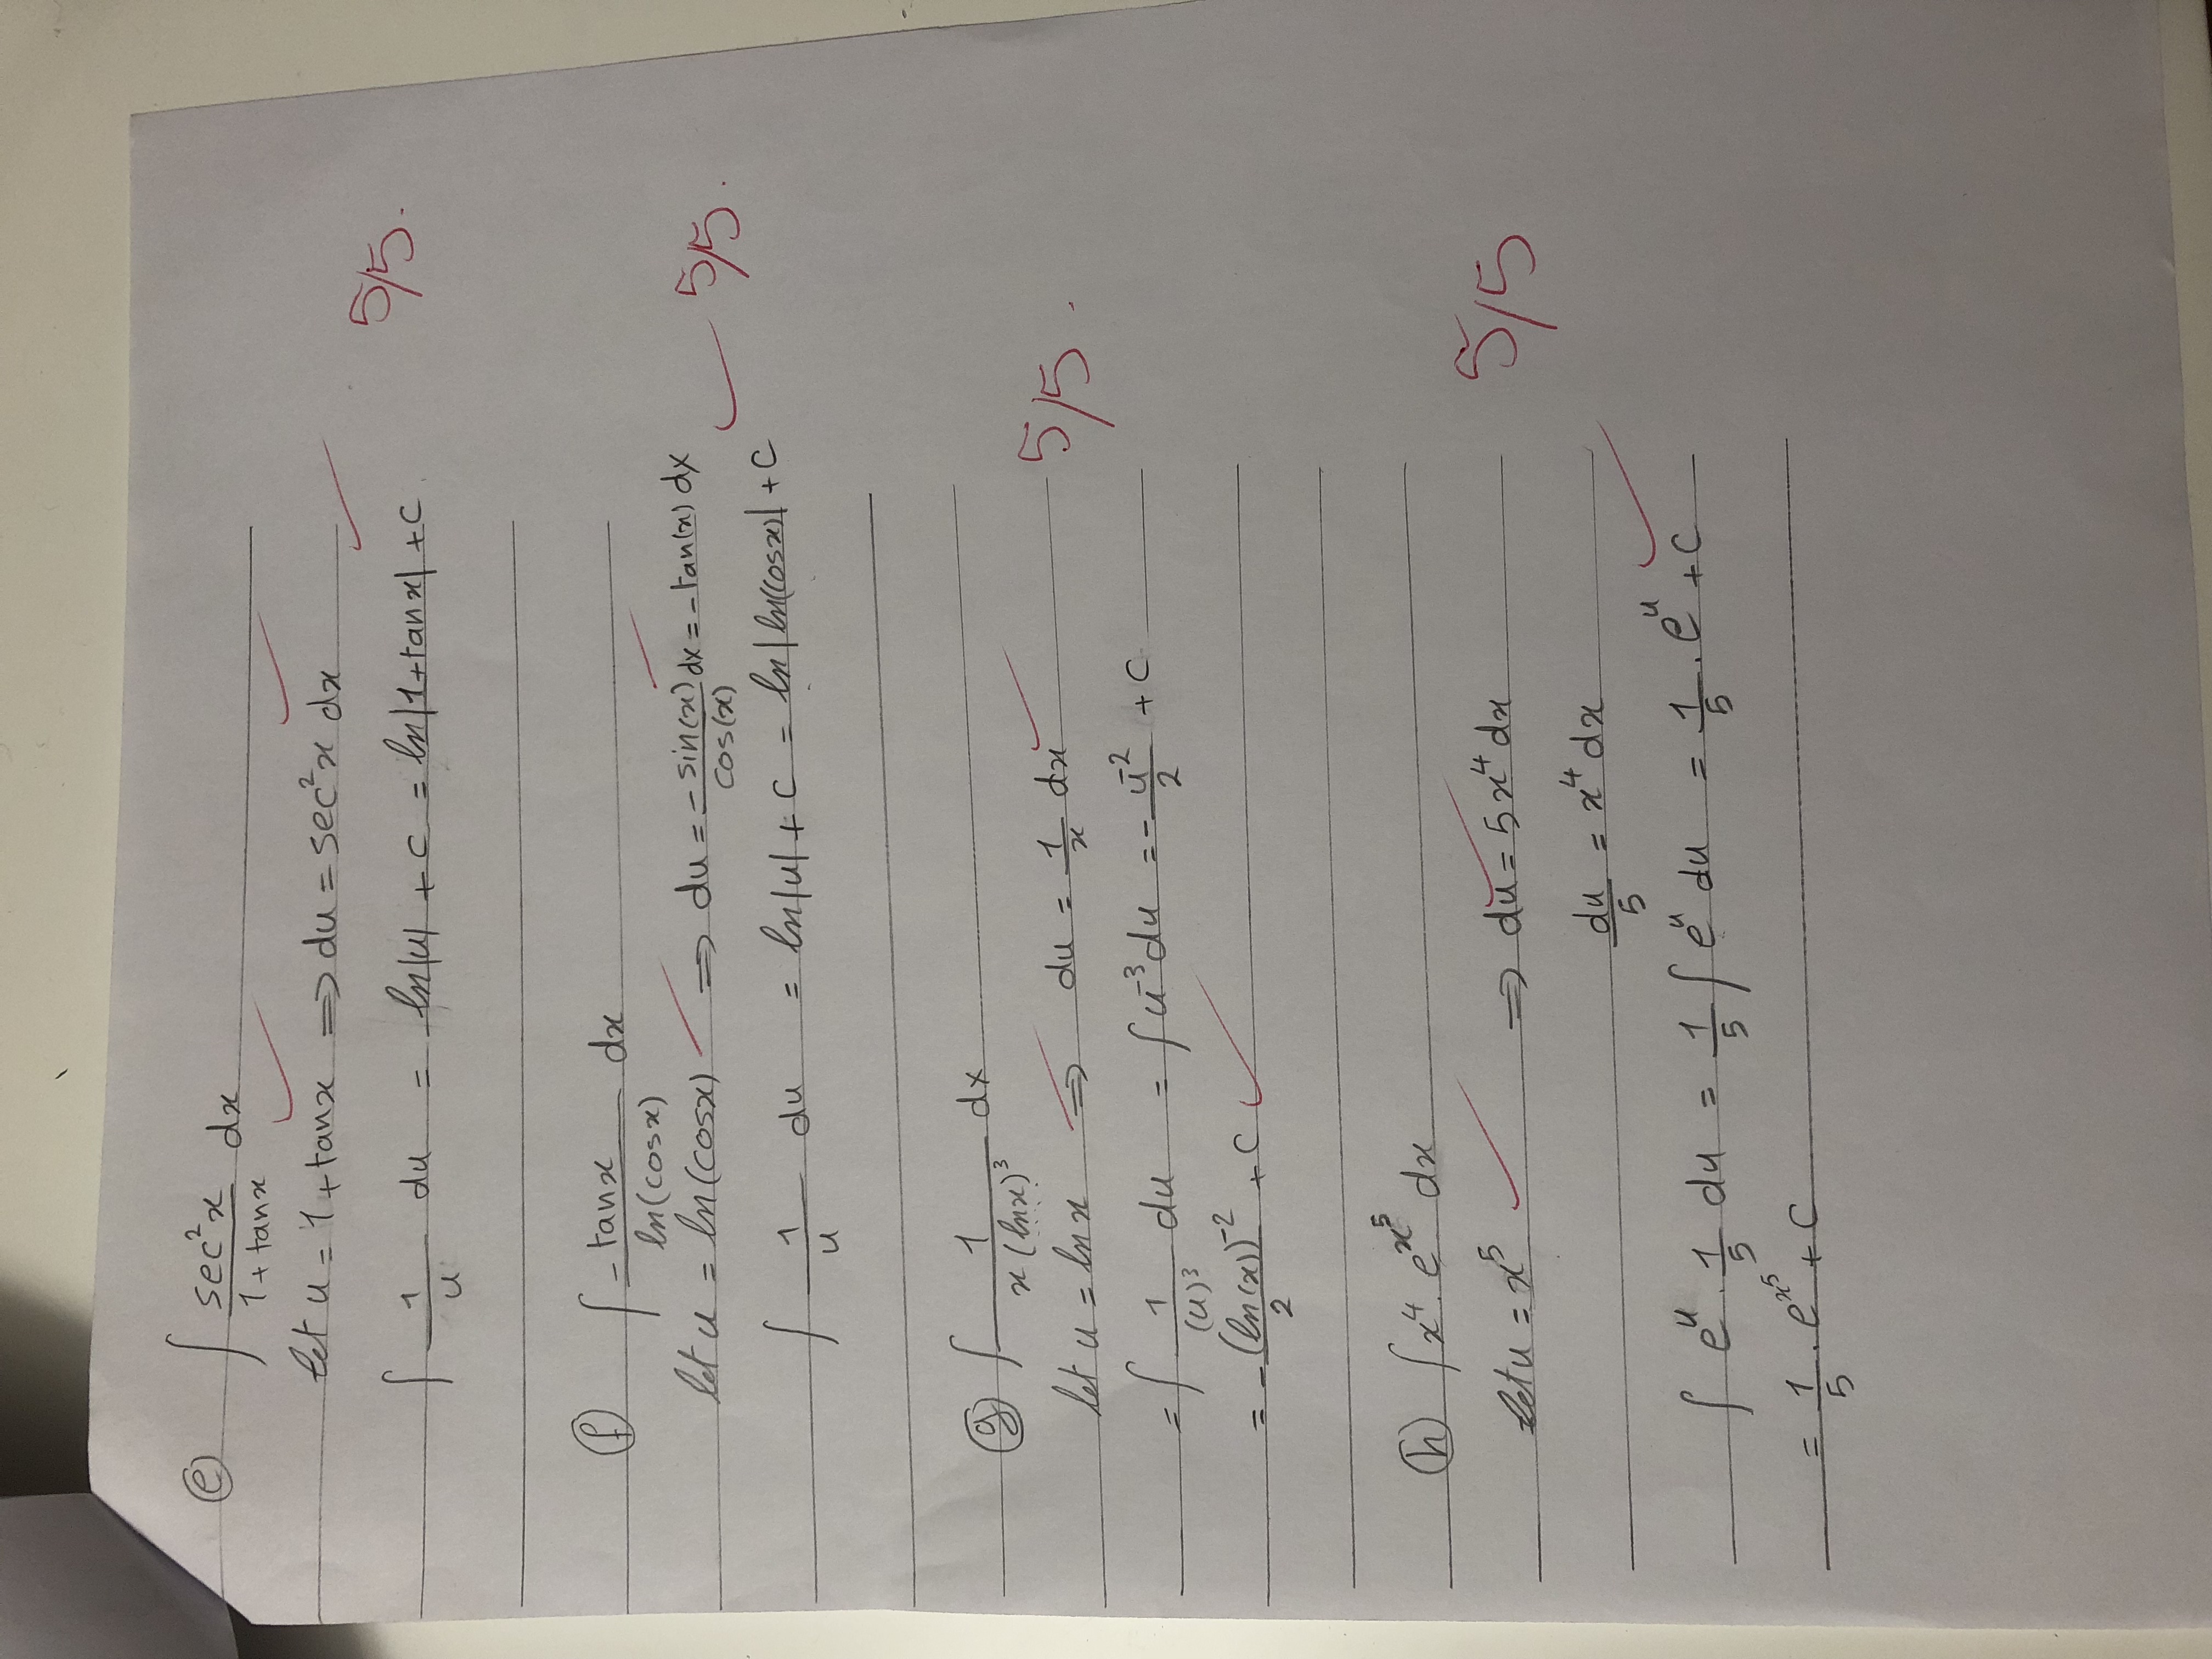 (e) ∫ sec²x / (1 + tanx) dx
let u = 1 + tanx ⇒ du = sec²x dx
∫ 1/u du = ln|u| + C = ln|1 + tanx| + C 5/5.
(f) ∫ -tanx / ln(cosx) dx
let u = ln(cosx) ⇒ du = -sin(x)/cos(x) dx = -tan(x) dx
∫ 1/u du = ln|u| + C = ln|ln(cosx)| + C 5/5.
(g) ∫ 1 / x(lnx)³ dx
let u = lnx ⇒ du = 1/x dx 5/5.
= ∫ 1/(u)³ du = ∫ u⁻³ du = - u⁻²/2 + C
= - (ln(x))⁻²/2 + C
(h) ∫ x⁴. e^x⁵ dx
let u = x⁵ ⇒ du = 5x⁴ dx 5/5
du/5 = x⁴ dx
∫ e^u. 1/5 du = 1/5 ∫ e^u du = 1/5 . e^u + C
= 1/5 . e^x⁵ + C